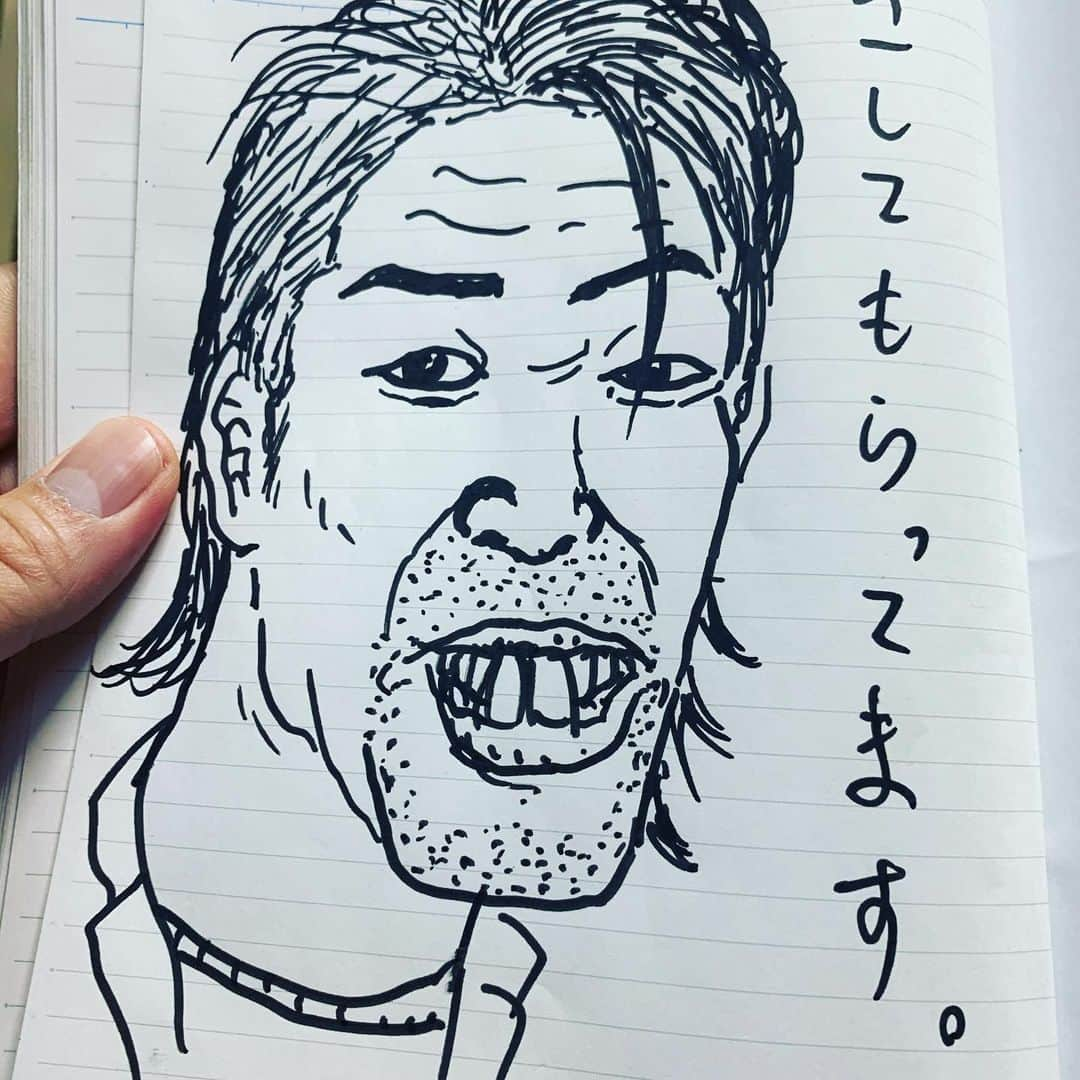 してもらってます。